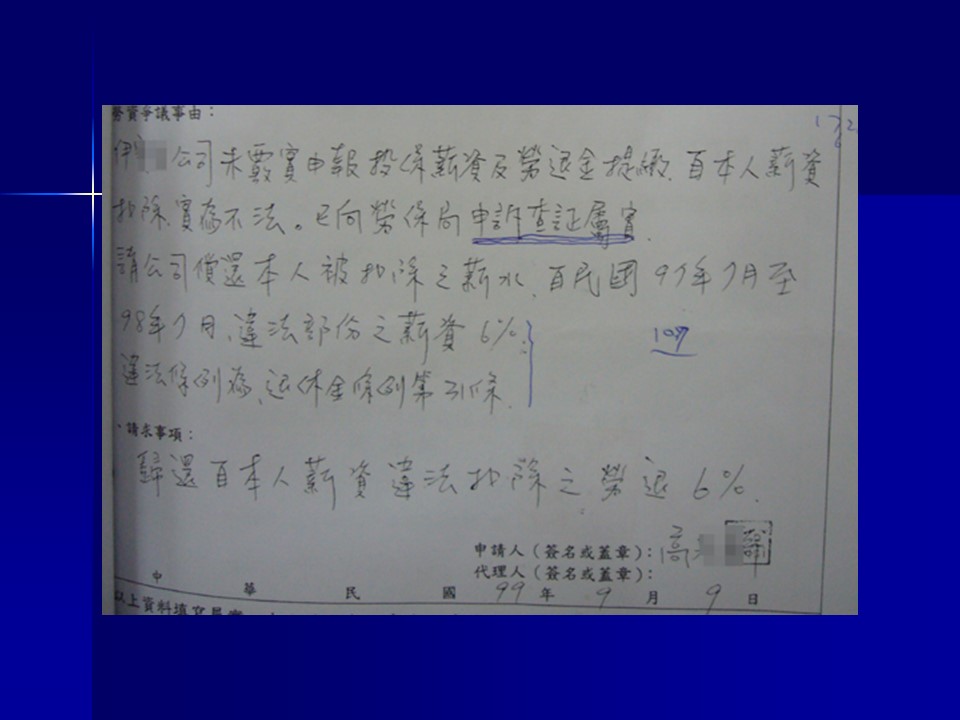 勞資爭議事由：
伊 公司未覈實申報投保薪資及勞退金提繳、自本人薪資
扣除、實為不法。已向勞保局申訴查証屬實.
請公司償還本人被扣除之薪水、自民國97年7月至
98年7月、違法部份之薪資6%.
107
違法條例為、退休金條例第31條.
、請求事項：
歸還自本人薪資違法扣除之勞退6%.
申請人（簽名或蓋章）：高
代理人（簽名或蓋章）：
中華民國99年9月9日
以上資料填寫